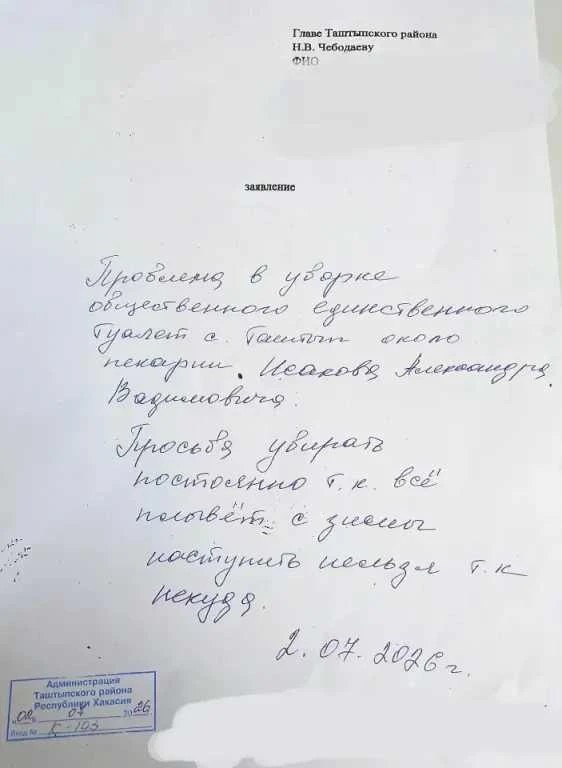 Главе Таштыпского района
Н.В. Чебодаеву
ФИО
заявление
Проблема в уборке
общественного единственного
туалет с. Таштып около
пекарни. Исакова Александра
Вадимовича.
Просьба убирать
постоянно т.к. всё
плывёт с зимы
наступить нельзя т.к
некуда.
2.07.2026 г.
Администрация
Таштыпского района
Республики Хакасия
"02" 07 2026
Вход № К-103